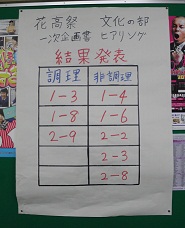 花高祭 文化の部
一次企画書 ヒアリング
結果発表
調理 非調理
1-3 1-4
1-8 1-6
2-9 2-2
2-3
2-8